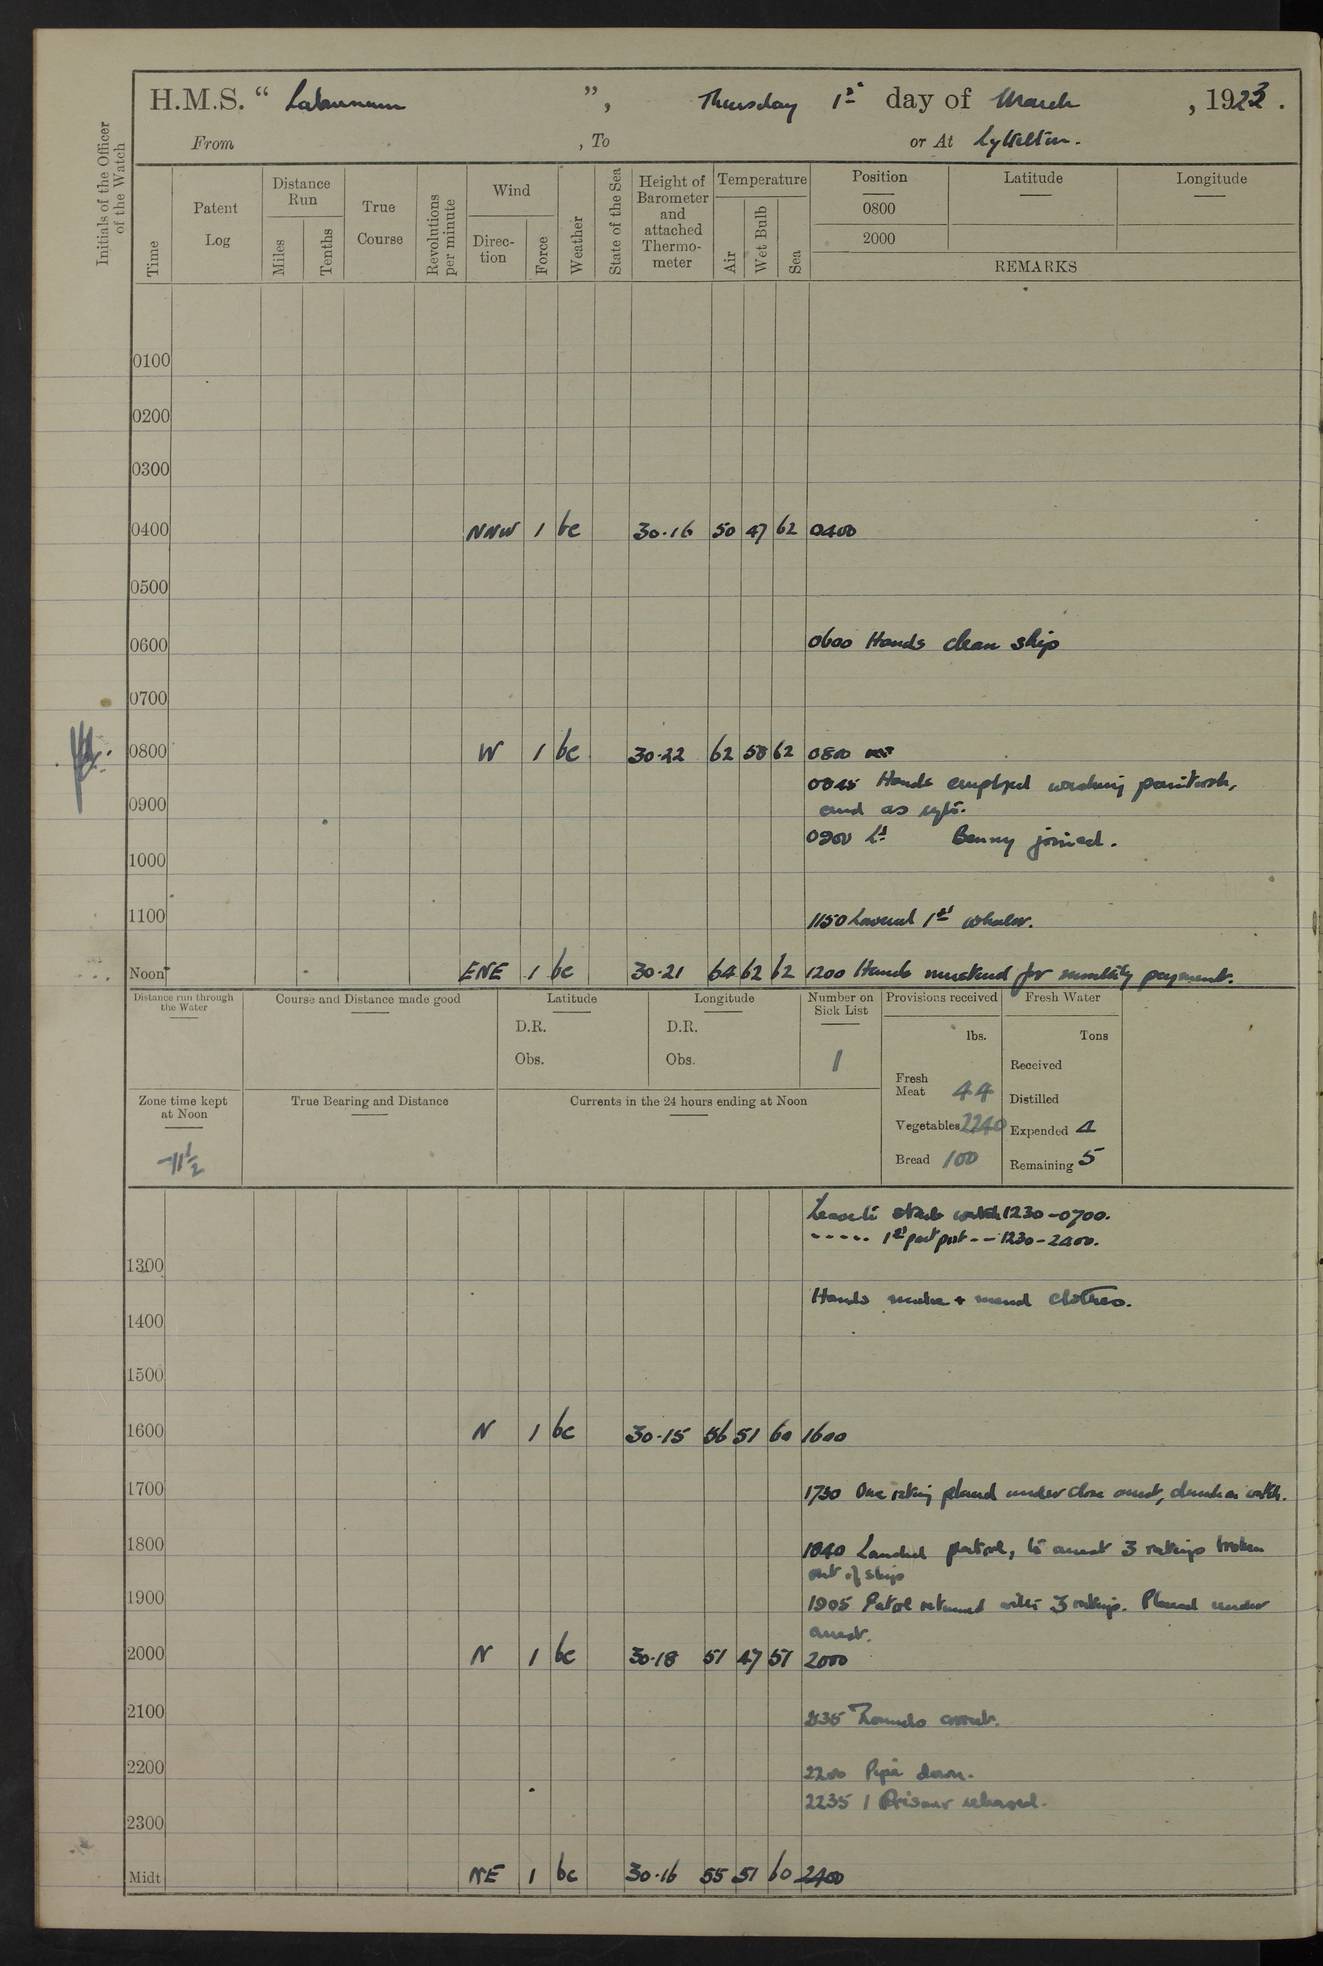 H.M.S. “ Laburnum ”, Thursday 1st day of March , 1923 .
From , To or At Lyttelton.
Initials of the Officer of the Watch
Time
Patent Log
Distance Run
Miles
Tenths
True Course
Revolutions per minute
Wind
Direc-tion
Force
Weather
State of the Sea
Height of Barometer and attached Thermo-meter
Temperature
Air
Wet Bulb
Sea
Position
0800
2000
Latitude
Longitude
REMARKS
0100
0200
0300
0400 NNW 1 bc 30·16 50 47 62 0400
0500
0600 0600 Hands clean ship
0700
0800 W 1 bc 30·22 62 58 62 0800
0845 Hands employed washing paintwork,
0900 and as reqte.
0900 Lt Benny joined.
1000
1100 1150 Lowered 1st whaler.
Noon ENE 1 bc 30·21 64 62 62 1200 Hands mustered for monthly payment.
Distance run through the Water
Course and Distance made good
Latitude
D.R.
Obs.
Longitude
D.R.
Obs.
Number on Sick List
1
Provisions received
lbs.
Fresh Meat 44
Vegetables 2240
Bread 100
Fresh Water
Tons
Received
Distilled
Expended 4
Remaining 5
Zone time kept at Noon
-11½
True Bearing and Distance
Currents in the 24 hours ending at Noon
Leave to starb watch 1230-0700.
----- 1st part port -- 1230-2400.
1300
Hands make + mend clothes.
1400
1500
1600 N 1 bc 30·15 56 51 60 1600
1700 1730 One rating placed under close arrest, drunk on watch.
1800 1840 Landed patrol, to arrest 3 ratings broken
out of ship
1900 1905 Patrol returned with 3 ratings. Placed under
arrest.
2000 N 1 bc 30·18 51 47 57 2000
2100 Rounds correct.
2200 2200 Pipe down.
2235 1 Prisoner released.
2300
Midt NE 1 bc 30·16 55 51 60 2400